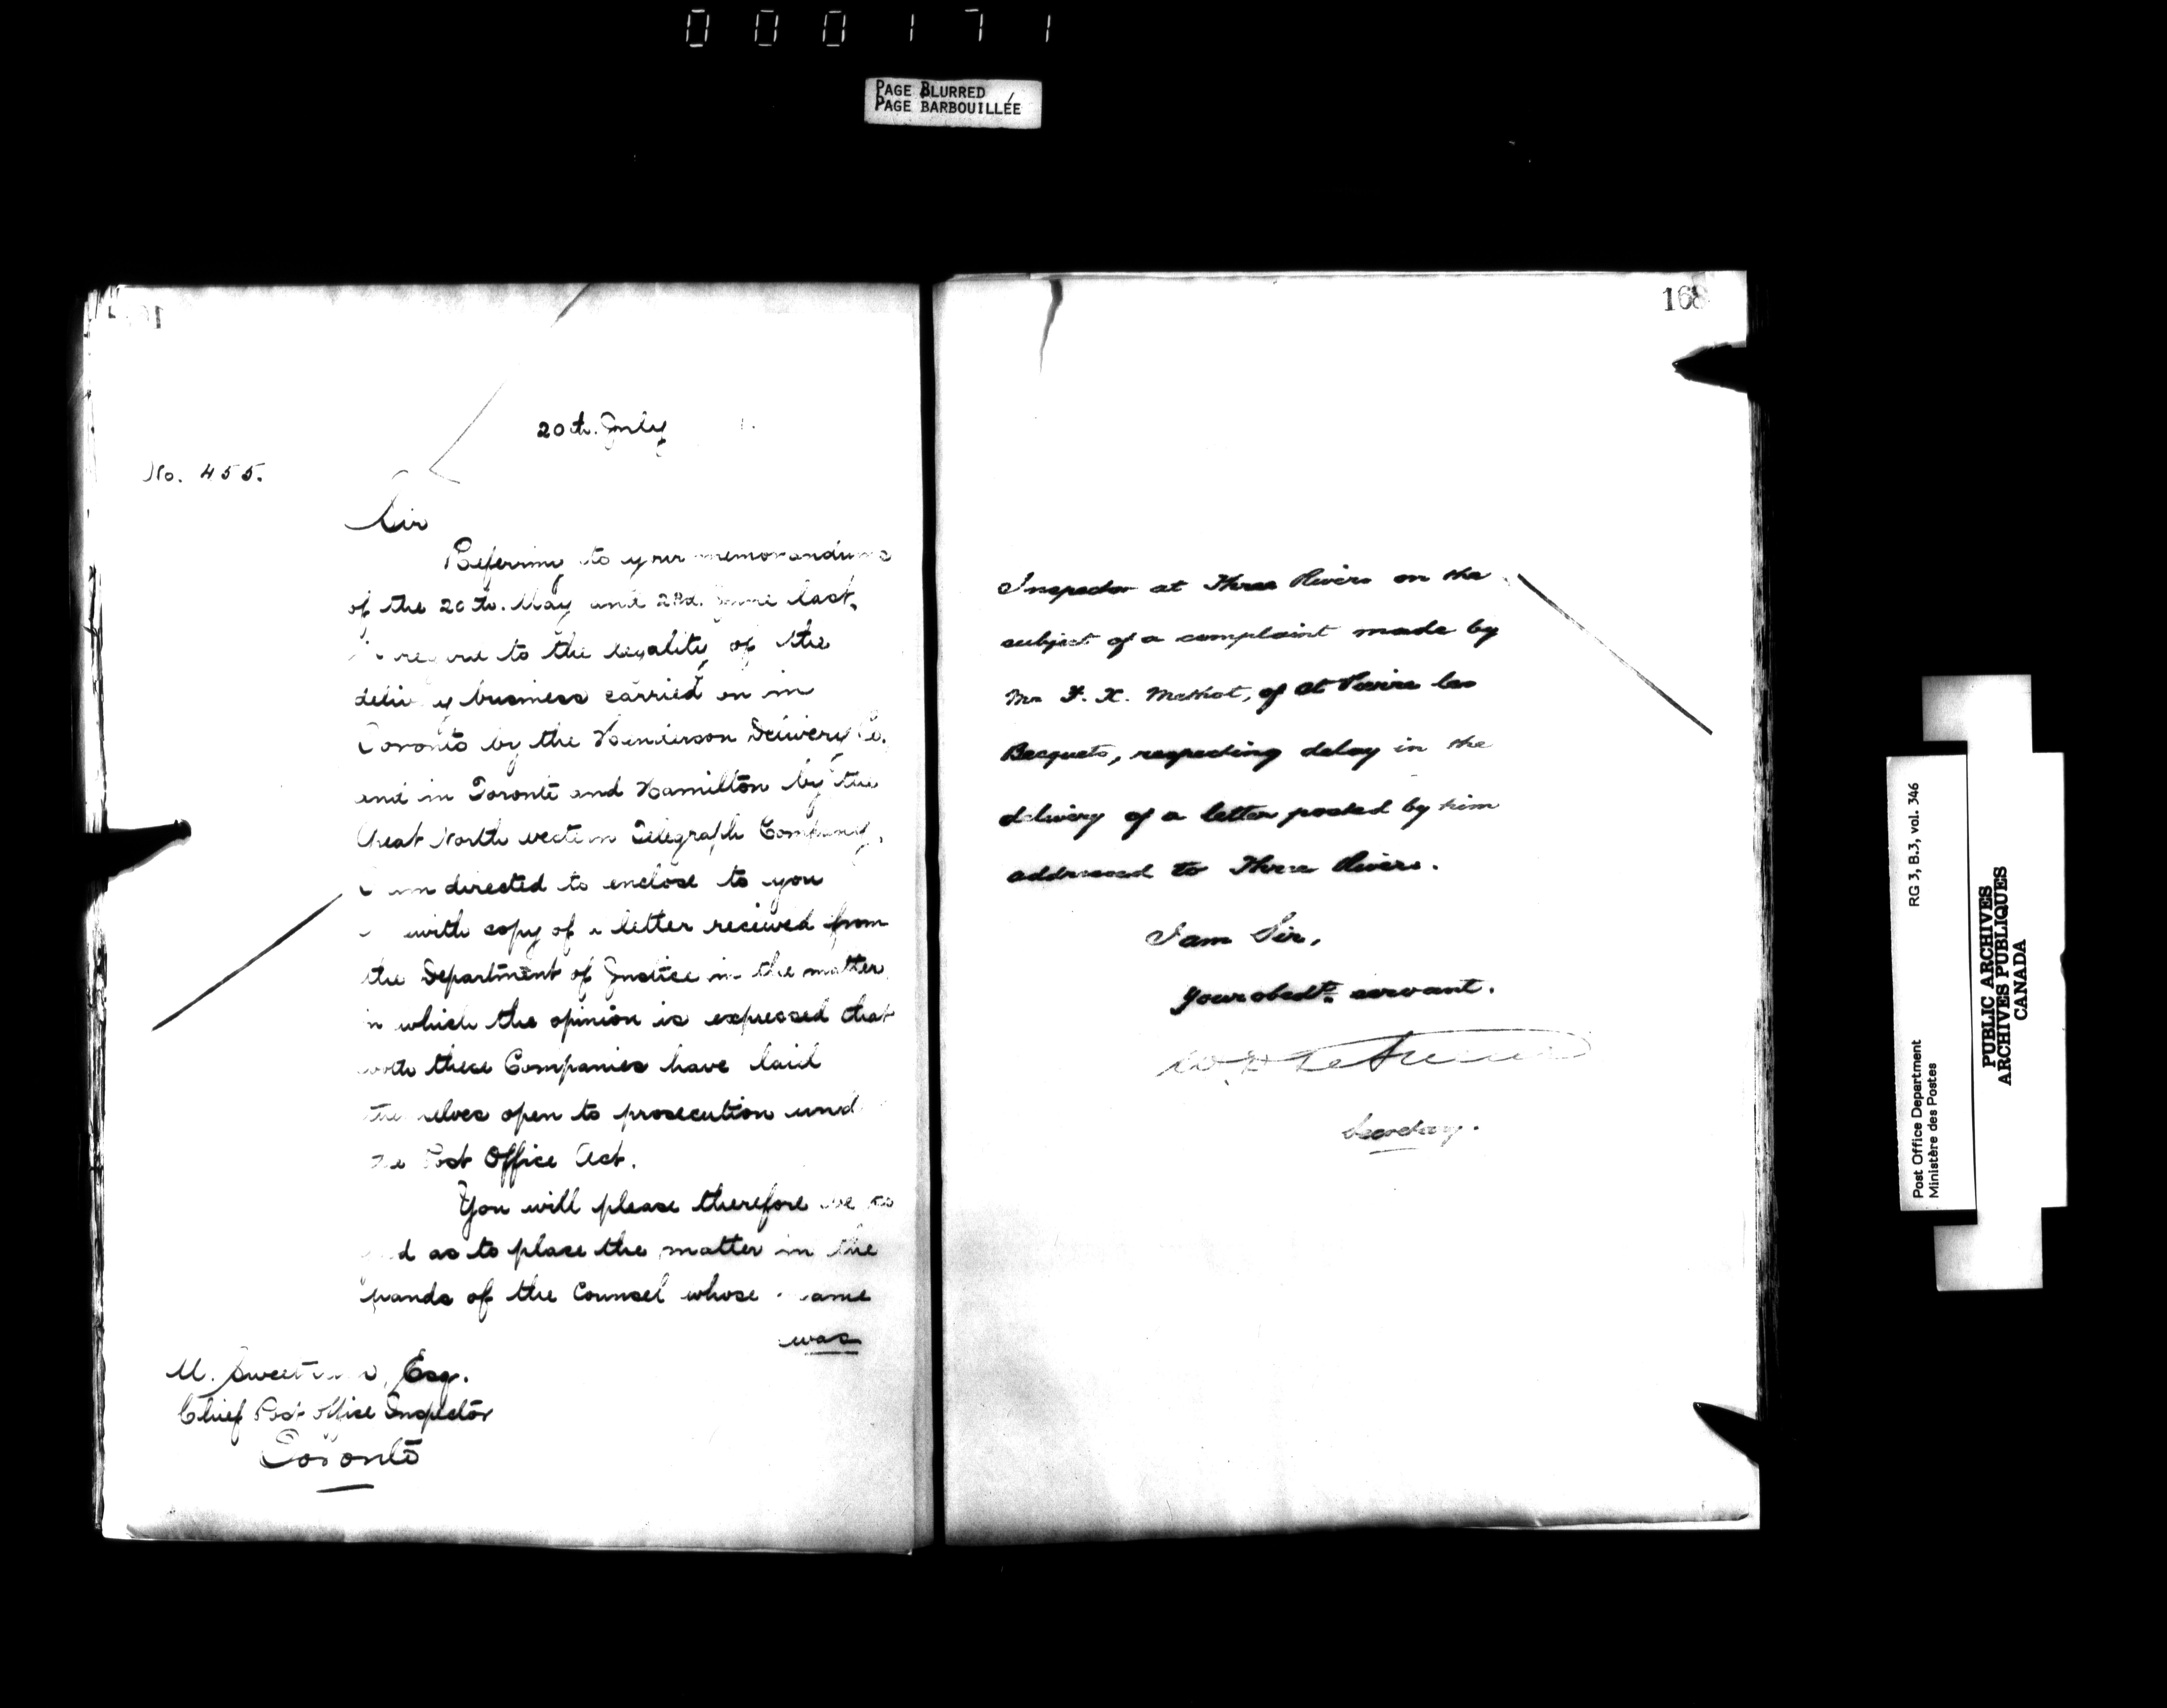 000171
PAGE BLURRED
PAGE BARBOUILLÉE
20th. July
No. 455.
Sir
Referring to your memorandums
of the 20th. May and 2nd. June last,
in regard to the legality of the
delivery business carried on in
Toronto by the Henderson Delivery Co.
and in Toronto and Hamilton by the
Great North western Telegraph Company,
I am directed to enclose to you
with copy of a letter received from
the Department of Justice in the matter
in which the opinion is expressed that
both these Companies have laid
themselves open to prosecution under
the Post Office Act.
You will please therefore be so
good as to place the matter in the
hands of the Counsel whose name
was
M. Sweetnam, Esq.
Chief Post Office Inspector
Toronto
168
Inspector at Three Rivers on the
subject of a complaint made by
Mr F. X. Methot, of St Pierre les
Becquets, respecting delay in the
delivery of a letter posted by him
addressed to Three Rivers.
I am Sir,
Your obedt. servant.
W. D. LeSueur
Secretary.
Post Office Department
Ministère des Postes
RG 3, B.3, vol. 346
PUBLIC ARCHIVES
ARCHIVES PUBLIQUES
CANADA